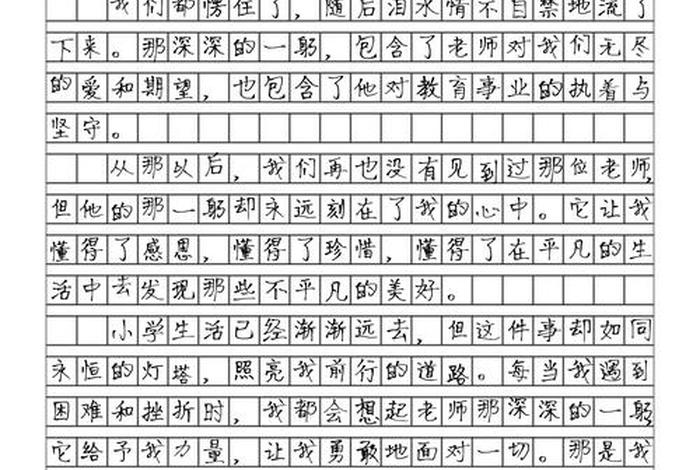 我们都愣住了，随后泪水情不自禁地流了
下来。那深深的一躬，包含了老师对我们无尽
的爱和期望，也包含了他对教育事业的执着与
坚守。
从那以后，我们再也没有见到过那位老师，
但他的那一躬却永远刻在了我的心中。它让我
懂得了感恩，懂得了珍惜，懂得了在平凡的生
活中去发现那些不平凡的美好。
小学生活已经渐渐远去，但这件事却如同
永恒的灯塔，照亮我前行的道路。每当我遇到
困难和挫折时，我都会想起老师那深深的一躬，
它给予我力量，让我勇敢地面对一切。那是我